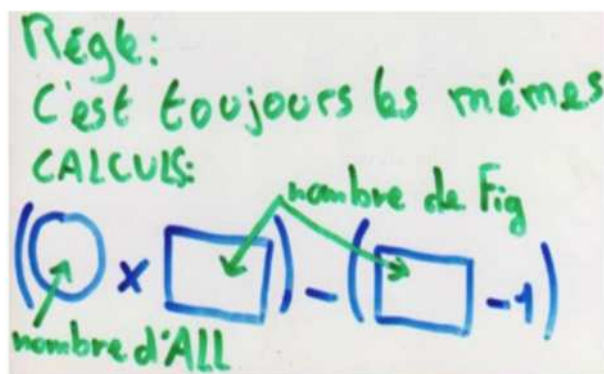 Règle:
C'est toujours les mêmes
CALCULS:
nombre de Fig
( × ) - ( -1)
nombre d'ALL